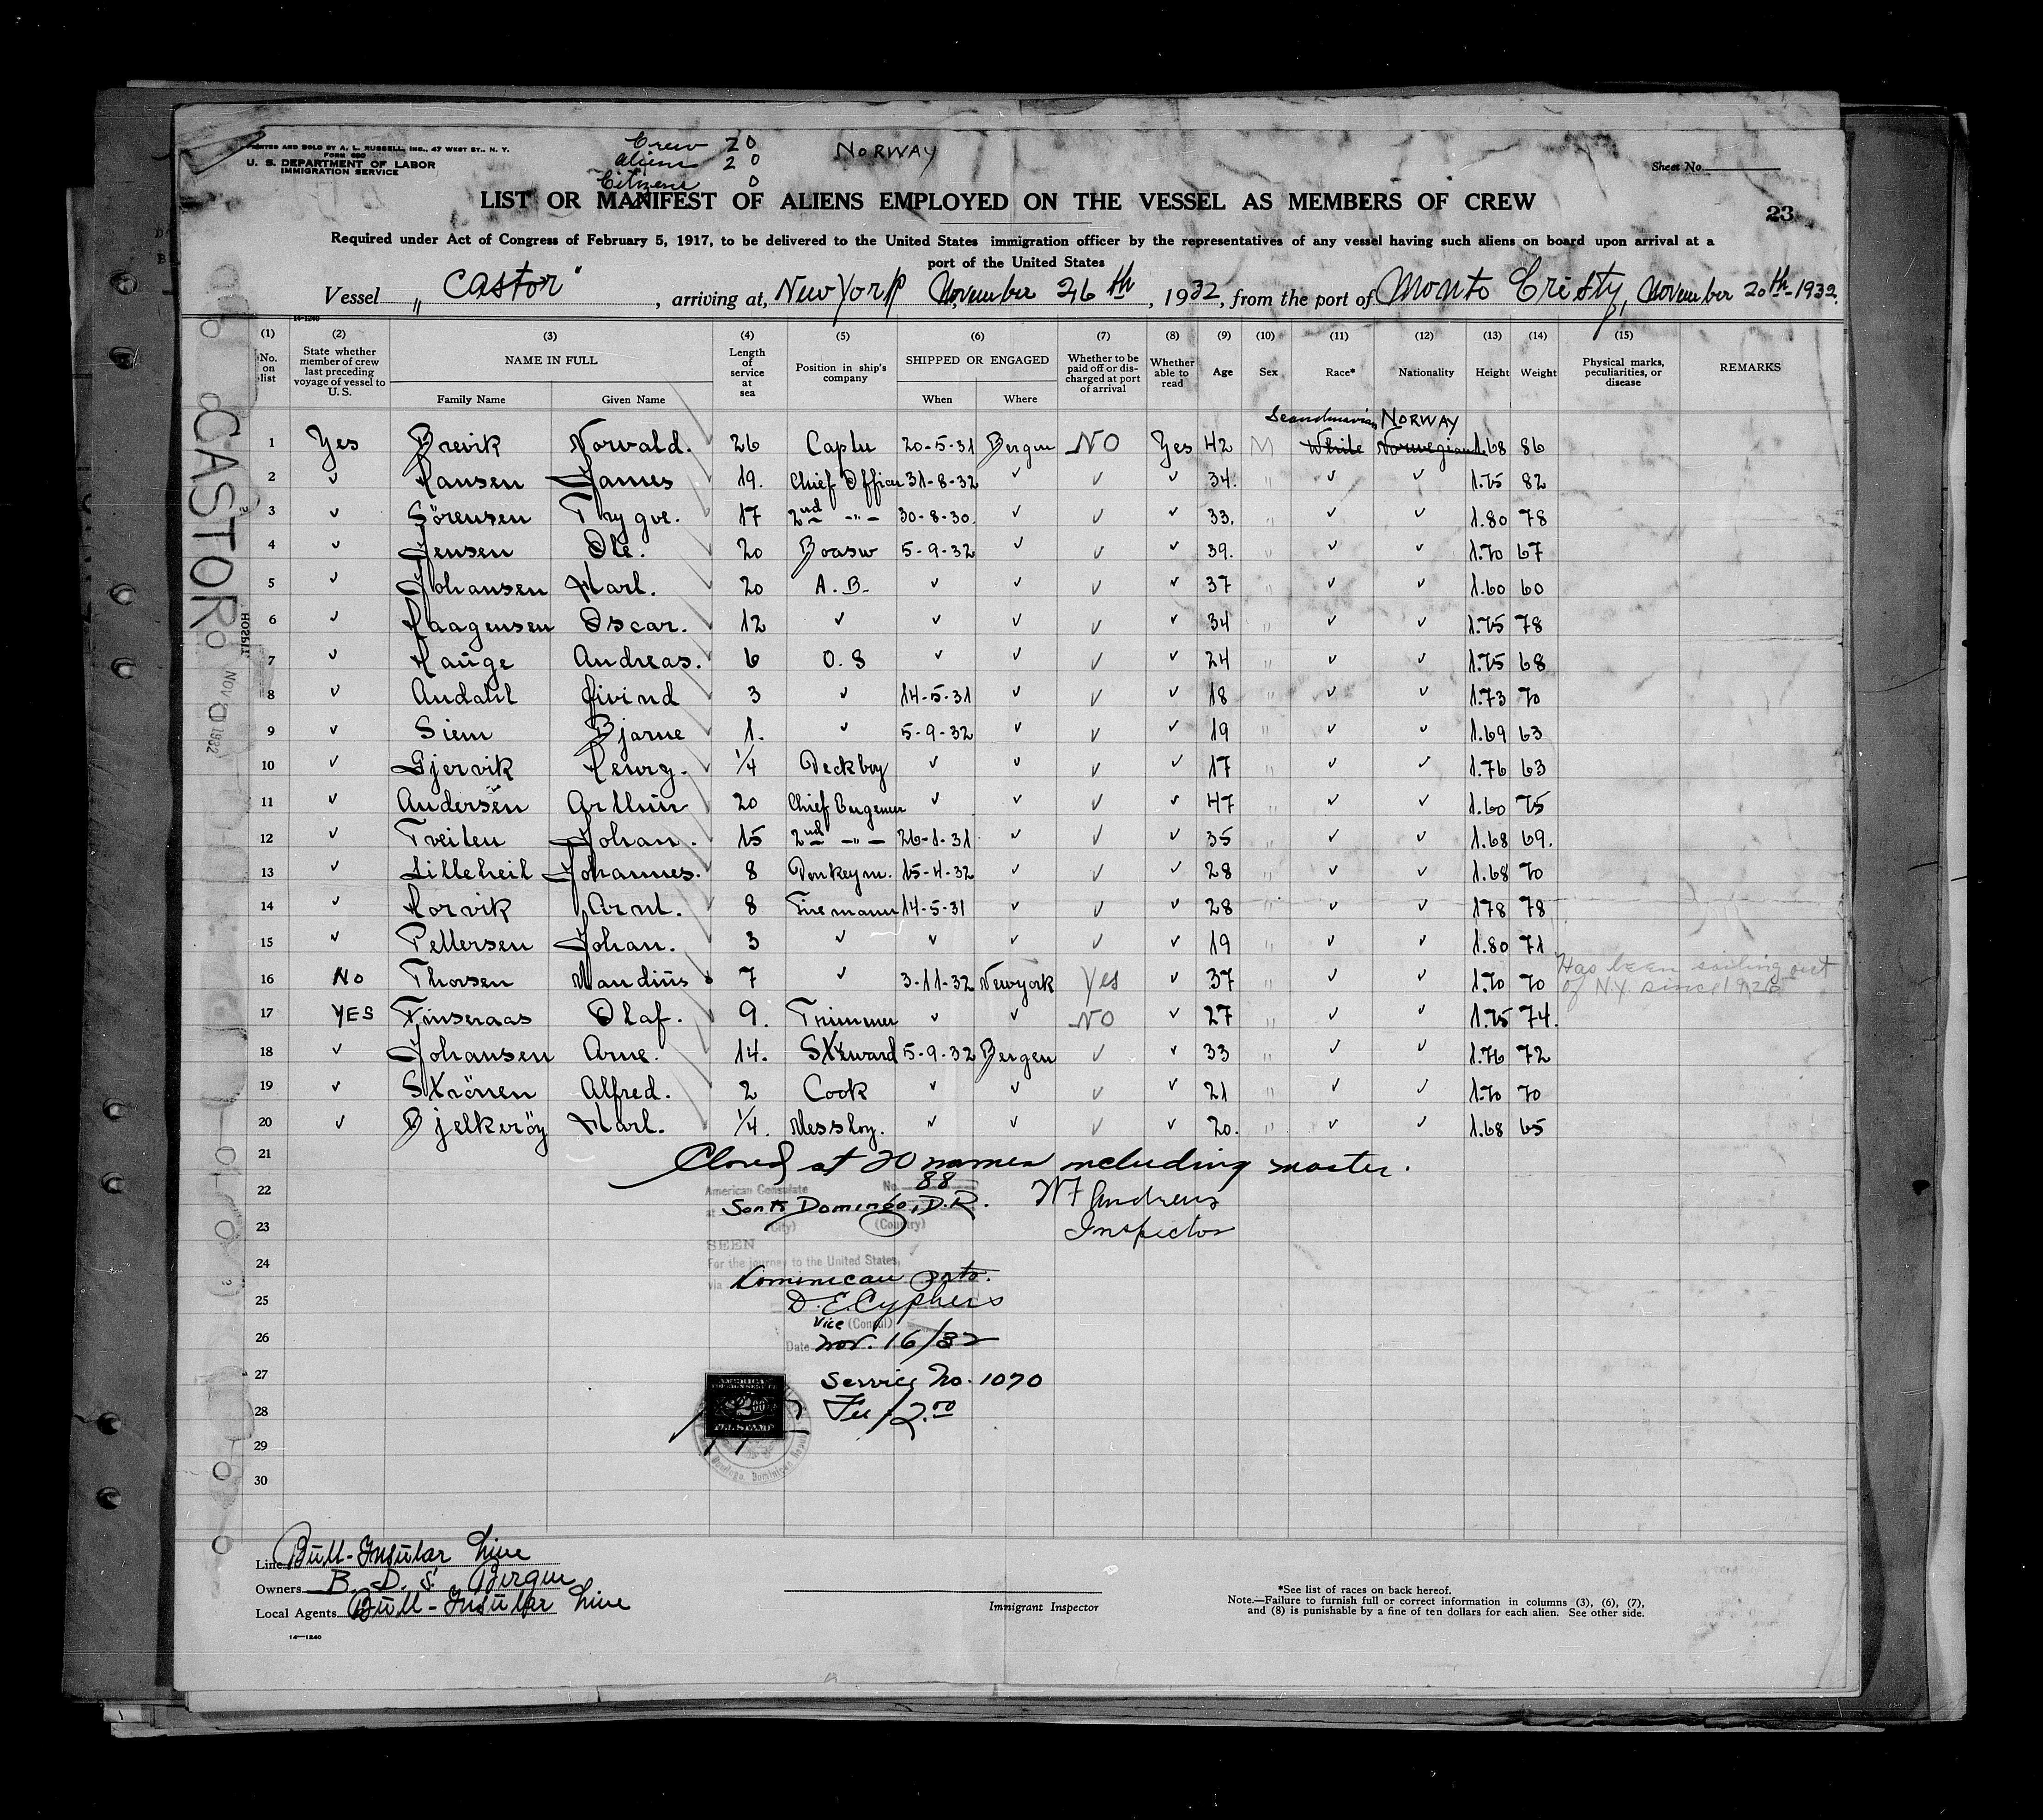 PRINTED AND SOLD BY A. L. RUSSELL, INC., 47 WEST ST., N. Y.
FORM 680
U. S. DEPARTMENT OF LABOR
IMMIGRATION SERVICE
Crew 20
Aliens 20
Citizens 0
NORWAY
Sheet No.
LIST OR MANIFEST OF ALIENS EMPLOYED ON THE VESSEL AS MEMBERS OF CREW
23
Required under Act of Congress of February 5, 1917, to be delivered to the United States immigration officer by the representatives of any vessel having such aliens on board upon arrival at a
port of the United States
Vessel „Castor", arriving at, New York November 26th, 1932, from the port of Monto Cristy, November 20th-1932.
14-1240
(1) (2) (3) (4) (5) (6) (7) (8) (9) (10) (11) (12) (13) (14) (15)
No. on list
State whether member of crew last preceding voyage of vessel to U. S.
NAME IN FULL
Family Name Given Name
Length of service at sea
Position in ship's company
SHIPPED OR ENGAGED
When Where
Whether to be paid off or discharged at port of arrival
Whether able to read
Age
Sex
Race*
Nationality
Height
Weight
Physical marks, peculiarities, or disease
REMARKS
Scandinavian NORWAY
1 Yes Brevik Norvald. 26 Captn 20-5-31 Bergen NO Yes 42 M White Norwegian 1.68 86
2 ✓ Hansen James 19. Chief Officer 31-8-32 ✓ ✓ ✓ 34. " ✓ ✓ 1.75 82
3 ✓ Sörensen Trygve. 17 2nd -"- 30-8-30. ✓ ✓ ✓ 33. " ✓ ✓ 1.80 78
4 ✓ Jensen Ole. 20 Boasw 5-9-32 ✓ ✓ ✓ 39. " ✓ ✓ 1.70 67
5 ✓ Johansen Karl. 20 A.B. ✓ ✓ ✓ ✓ 37 " ✓ ✓ 1.60 60
6 ✓ Haagensen Oscar. 12 ✓ ✓ ✓ ✓ ✓ 34 " ✓ ✓ 1.75 78
7 ✓ Hauge Andreas. 6 O.S ✓ ✓ ✓ ✓ 24 " ✓ ✓ 1.75 68
8 ✓ Andahl Eivind 3 ✓ 14-5-31 ✓ ✓ ✓ 18 " ✓ ✓ 1.73 70
9 ✓ Siem Bjarne 1. ✓ 5-9-32 ✓ ✓ ✓ 19 " ✓ ✓ 1.69 63
10 ✓ Gjervik Henrg. 1/4 Deckboy ✓ ✓ ✓ ✓ 17 " ✓ ✓ 1.76 63
11 ✓ Andersen Arthur 20 Chief Engener ✓ ✓ ✓ ✓ 47 " ✓ ✓ 1.60 75
12 ✓ Tveiten Johan. 15 2nd -"- 26-1-31 ✓ ✓ ✓ 35 " ✓ ✓ 1.68 69.
13 ✓ Lilleheil Johannes. 8 Donkeym. 15-4-32 ✓ ✓ ✓ 28 " ✓ ✓ 1.68 70
14 ✓ Horvik Arnt. 8 Firemann 14-5-31 ✓ ✓ ✓ 28 " ✓ ✓ 178 78
15 ✓ Pettersen Johan. 3 ✓ ✓ ✓ ✓ ✓ 19 " ✓ ✓ 1.80 71
16 No Thorsen Mandius 7 ✓ 3-11-32 Newyork Yes ✓ 37 " ✓ ✓ 1.70 70 Has been sailing out of N.Y. since 1926
17 YES Finseraas Olaf. 9. Trimmer ✓ ✓ NO ✓ 27 " ✓ ✓ 1.75 74.
18 ✓ Johansen Arne. 14. Steward 5-9-32 Bergen ✓ ✓ 33 " ✓ ✓ 1.76 72
19 ✓ Strönen Alfred. 2 Cook ✓ ✓ ✓ ✓ 21 " ✓ ✓ 1.70 70
20 ✓ Bjelkeröy Karl. 1/4. Messboy. ✓ ✓ ✓ ✓ 20. " ✓ ✓ 1.68 65
21 Closed at 20 names including master.
22 American Consulate No. 88
at Santo Domingo, D.R. W F Andrews
23 (City) (Country) Inspector
SEEN
24 For the journey to the United States,
via Dominican ports.
25 D. E. Cyphers
Vice (Consul)
26 Date Nov. 16/32
27 Service No. 1070
28 Fee $2.00
29
30
CASTOR
NOV 1932
Line Bull-Insular Line
Owners B. D. S. Bergen
Local Agents Bull-Insular Line
14-1240
Immigrant Inspector
*See list of races on back hereof.
Note.—Failure to furnish full or correct information in columns (3), (6), (7),
and (8) is punishable by a fine of ten dollars for each alien. See other side.